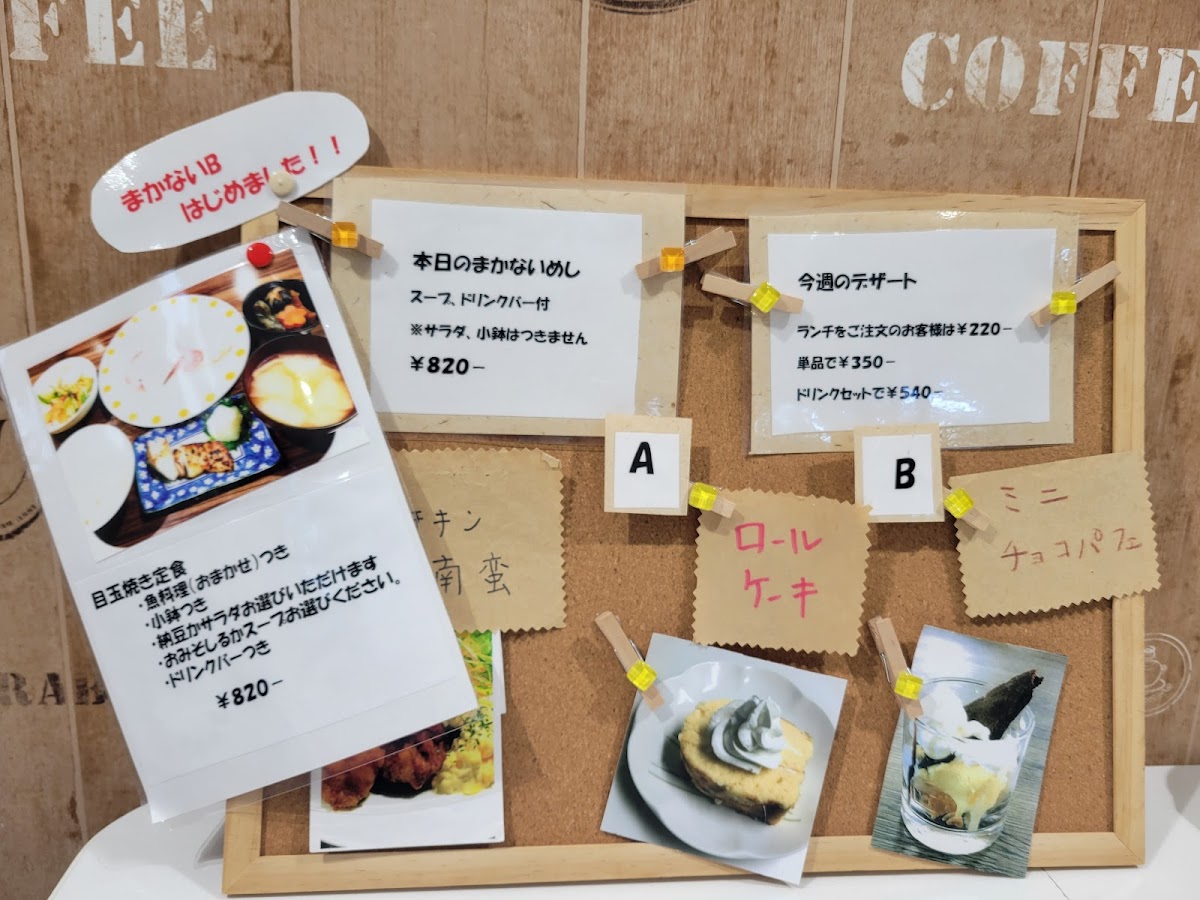 FEE
COFFE
まかないB
はじめました！！
本日のまかないめし
スープ、ドリンクバー付
※サラダ、小鉢はつきません
￥820－
今週のデザート
ランチをご注文のお客様は￥220－
単品で￥350－
ドリンクセットで￥540－
A
B
キン
南蛮
ロール
ケーキ
ミニ
チョコパフェ
目玉焼き定食
・魚料理(おまかせ)つき
・小鉢つき
・納豆かサラダお選びいただけます
・おみそしるかスープお選びください。
・ドリンクバーつき
￥820－